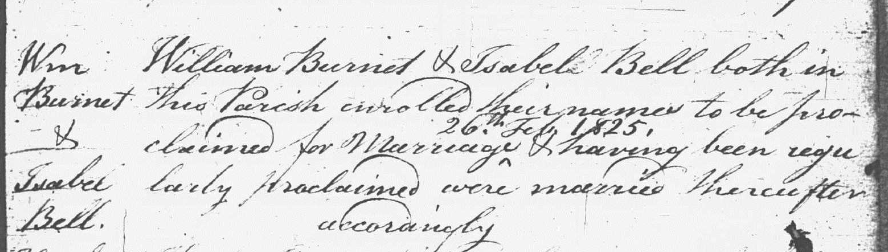 Wm William Burnet & Isabel Bell both in
Burnet this Parish enrolled their names to be pro-
26th Feb 1825.
& claimed for Marriage & having been regu
Isabel larly proclaimed were married thereafter
Bell. accordingly